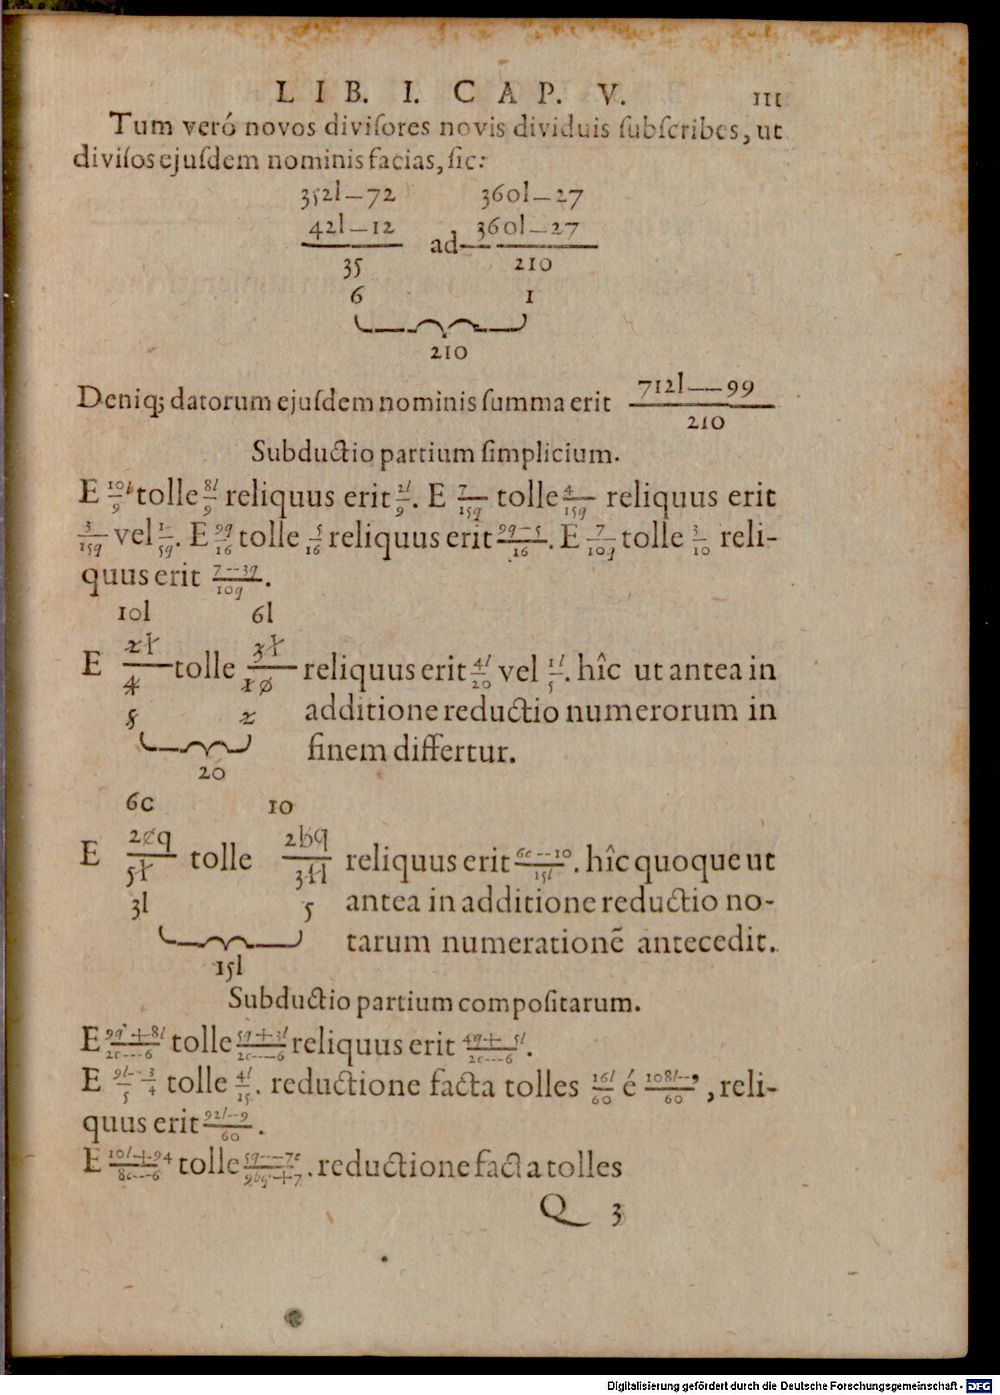 LIB. I. CAP. V. 111
Tum veró novos diviſores novis dividuis ſubſcribes, ut
diviſos ejuſdem nominis facias, ſic:
352l—72 360l—27
42l—12 ad 360l—27
35 210
6 1
210
Deniq; datorum ejuſdem nominis ſumma erit 712l—99/210
Subductio partium ſimplicium.
E 10l/9 tolle 8l/9 reliquus erit 2l/9. E 7/15q tolle 4/15q reliquus erit
3/15q vel 1/5q. E 9q/16 tolle 5/16 reliquus erit 9q--5/16. E 7/10q tolle 3/10 reli-
quus erit 7--3q/10q.
10l 6l
E 2l/4 tolle 3l/10 reliquus erit 4l/20 vel 1l/5. hîc ut antea in
5 2 additione reductio numerorum in
finem differtur.
20
6c 10
E tolle reliquus erit 6c--10/15l. hîc quoque ut
3l 5 antea in additione reductio no-
tarum numerationẽ antecedit.
15l
Subductio partium compoſitarum.
E 9q+8l/2c---6 tolle 5q+3l/2c---6 reliquus erit 4q+5l/2c---6.
E 9l/5--3/4 tolle 4l/15. reductione facta tolles 16l/60 é 108l--9/60, reli-
quus erit 92l--9/60.
E tolle . reductione facta tolles
Q 3
Digitalisierung gefördert durch die Deutsche Forschungsgemeinschaft - DFG